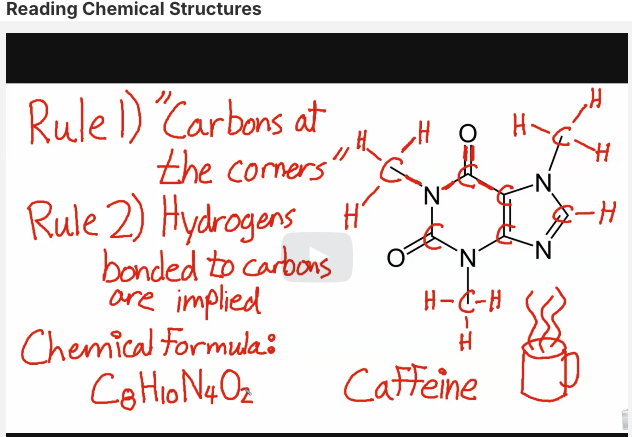 Reading Chemical Structures
Rule 1) "Carbons at
the corners"
Rule 2) Hydrogens
bonded to carbons
are implied
Chemical Formula:
C8H10N4O2
H H
C
H
O
C
N
C
O
N
C
C
N
C-H
N
H-C-H
H
H-C-H
H
Caffeine